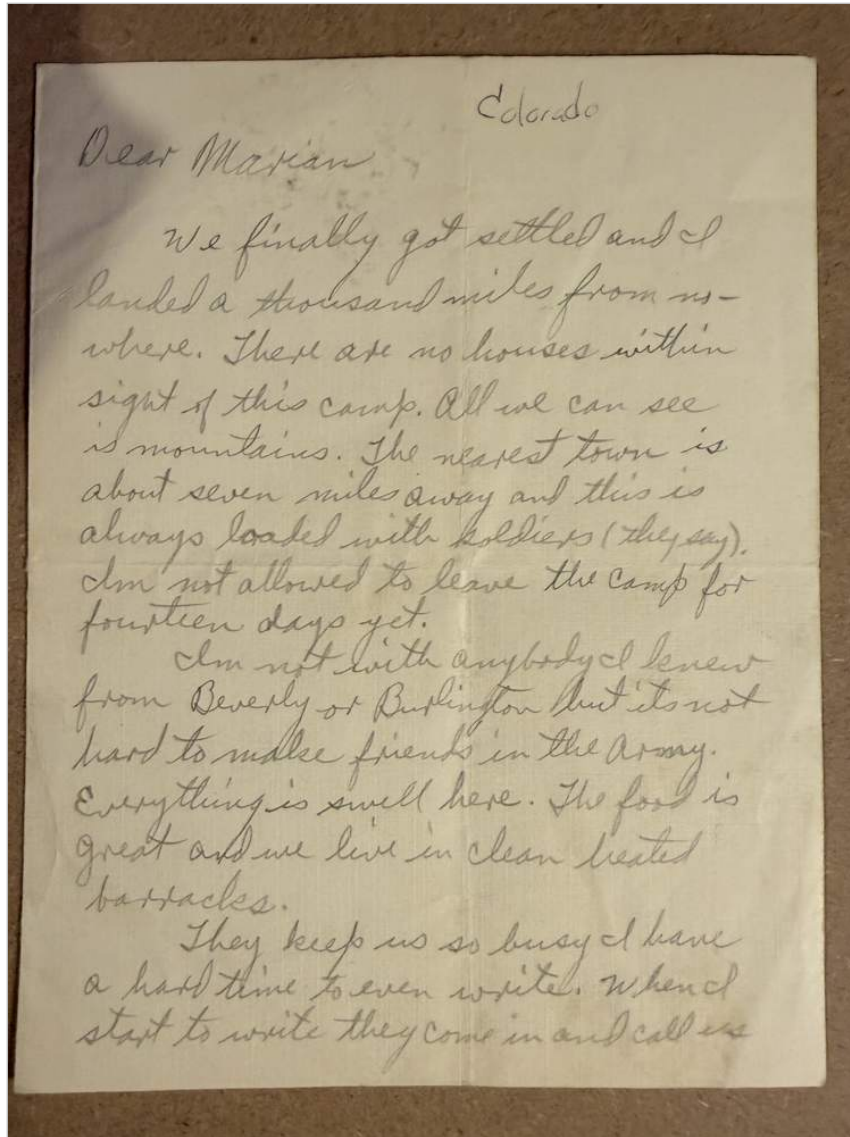 Colorado
Dear Marian
We finally got settled and I
landed a thousand miles from no-
where. There are no houses within
sight of this camp. All we can see
is mountains. The nearest town is
about seven miles away and this is
always loaded with soldiers (they say).
Im not allowed to leave the camp for
fourteen days yet.
Im not with anybody I knew
from Beverly or Burlington but its not
hard to make friends in the Army.
Everything is swell here. The food is
great and we live in clean heated
barracks.
They keep us so busy I have
a hard time to even write. When I
start to write they come in and call us